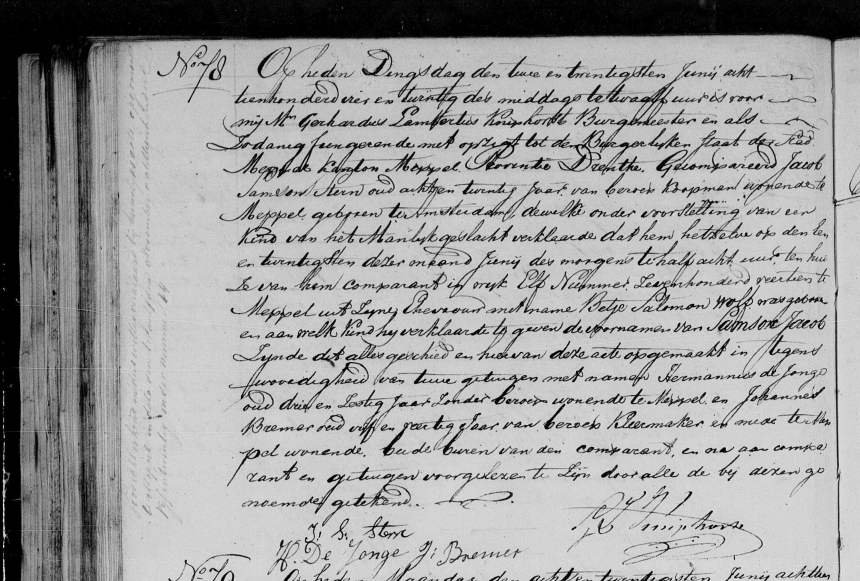 No 78
Op heden Dingsdag den twee en twintigsten Junij acht
tienhonderd vier en twintig des middags te twaalf uur is voor
mij Mr Gerhardus Lambertus Kniphorst Burgemeester en als
Zodanig fungerende met opzigt tot den Burgerlijken Staat der Stad
Meppel Kanton Meppel Provintie Drenthe, Gecompareerd Jacob
Samson Stern oud acht en twintig Jaar van beroep Koopman wonende te
Meppel geboren te Amsterdam, dewelke onder voorstelling van een
Kind van het Manlijk geslacht verklaarde dat hem hetzelve op den een
en twintigsten dezer maand Junij des morgens te half acht uur, ten hui
ze van hem comparant in wijk Elf Nummer Zevenhonderd veertien te
Meppel uit Zyne Ehevrouw met name Betje Salomon Wolf was geboren
en aan welk Kind hy verklaarde te geven de voornamen van Samson Jacob
Zijnde dit alles geschied en hiervan deze acte opgemaakt in tegens
woordigheid van twee getuigen met namen Hermannus de Jonge
oud drie en Zestig Jaar Zonder beroep wonende te Meppel en Johannes
Bremer oud vijf en veertig Jaar van beroep Kleermaker en mede te Mep
pel wonende, beide buren van den comparant, en na aan compa
rant en getuigen voorgelezen te Zijn door alle de bij dezen ge
noemden getekend.
J: S: Stern
GL Kniphorst
H. De Jonge J: Bremer
No 79
Op heden Maandag den acht en twintigsten Junij achttien